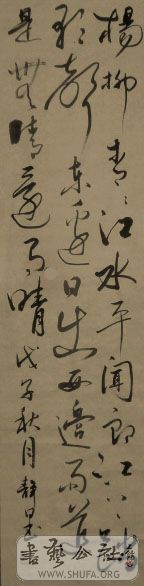 楊柳青々江水平聞郎江上
歌聲東邊日出西邊雨道
是無晴還有晴戊子秋月靜
書藝公社
WWW.SHUFA.ORG